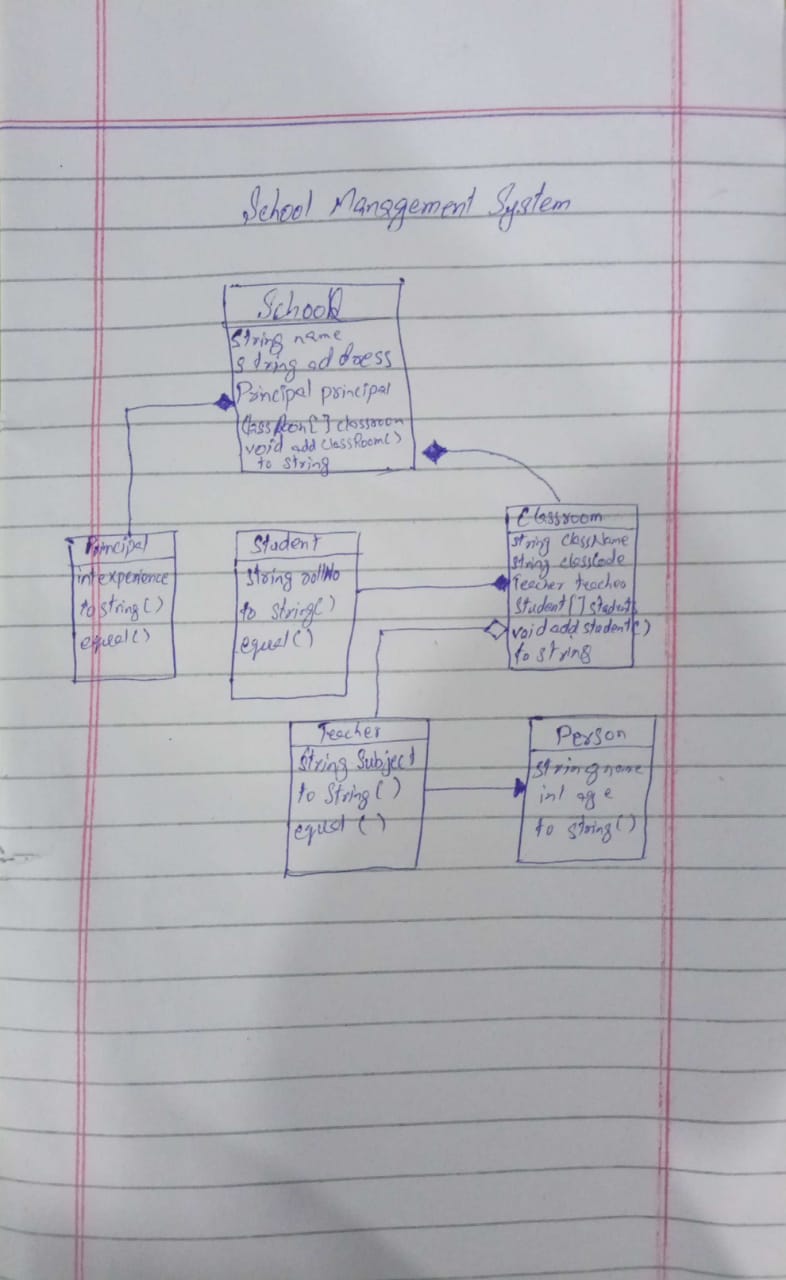 School Management System
School
String name
string address
Principal principal
ClassRoom[] classroom
void addClassRoom()
to string
Principal
int experience
to string()
equal()
Student
String rollNo
to string()
equal()
Classroom
string className
string classCode
Teacher teacher
Student[] student
void add student()
to string
Teacher
String Subject
to String()
equal()
Person
String name
int age
to string()